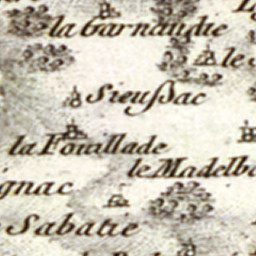 la Garnaudie
le
Sieußac
la Fouillade
le Madelb
gnac
Sabatie